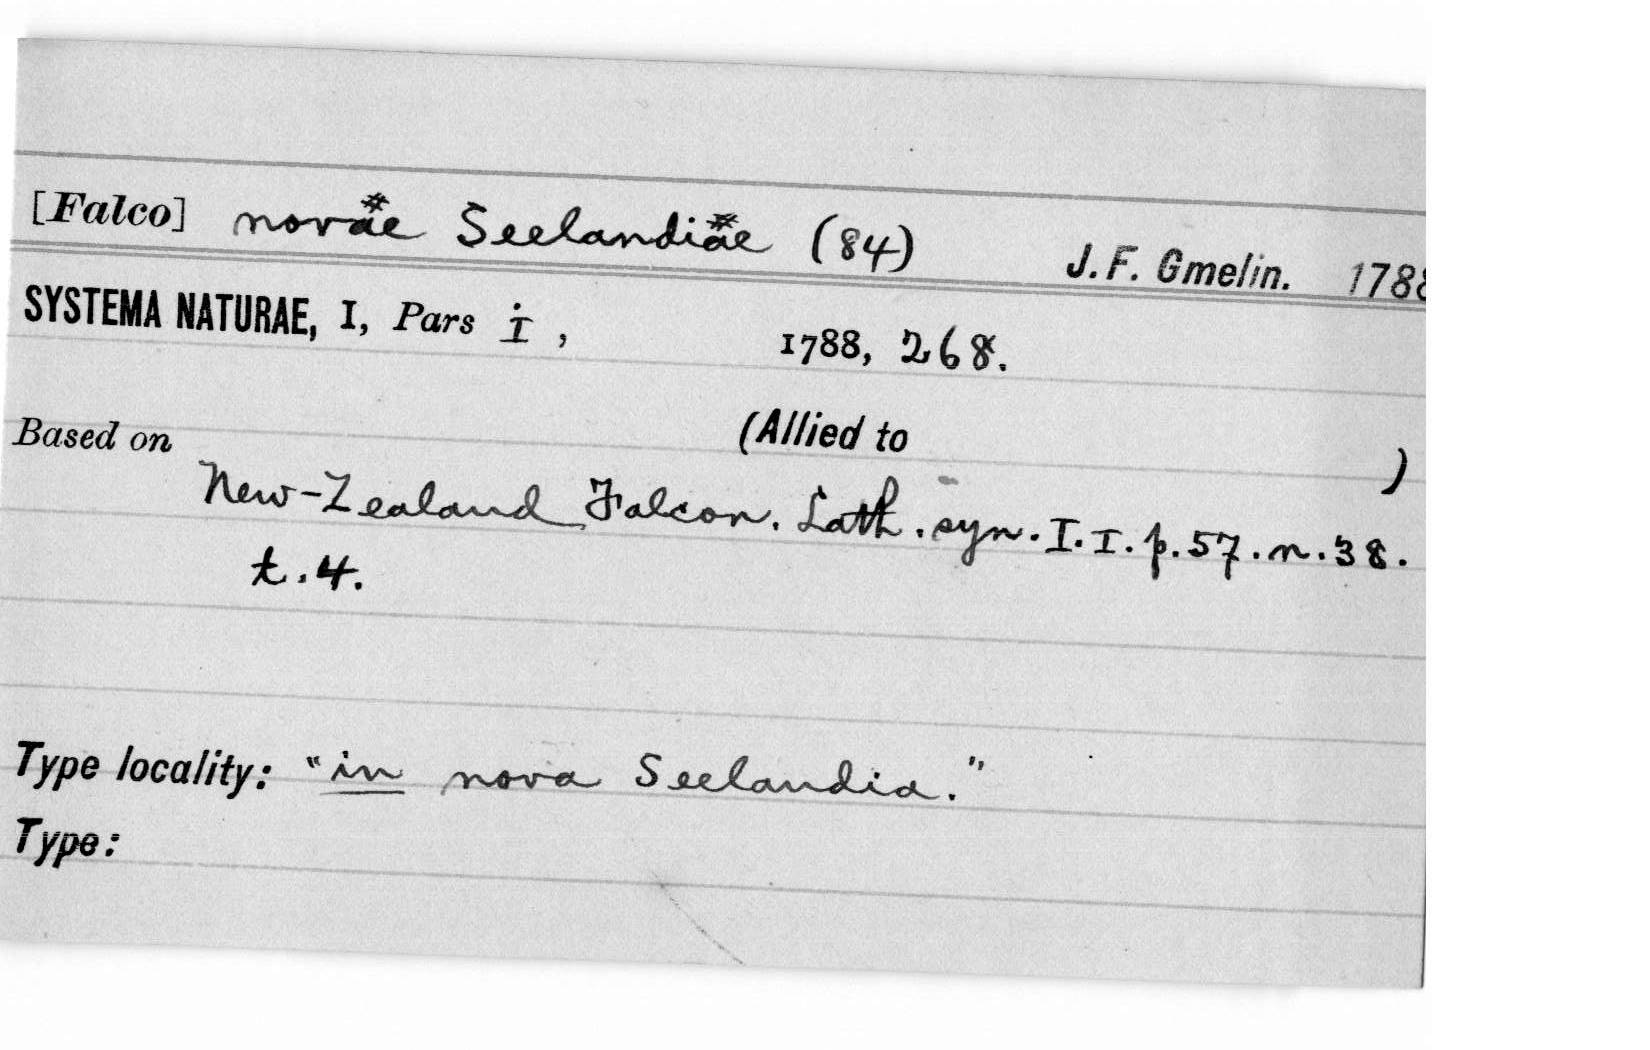 [Falco] novae# Seelandiae# (84) J. F. Gmelin. 1788
SYSTEMA NATURAE, I, Pars i, 1788, 268.
Based on (Allied to )
New-Zealand Falcon. Lath. syn. I. I. p. 57. n. 38.
t. 4.
Type locality: "in nova Seelandia."
Type: